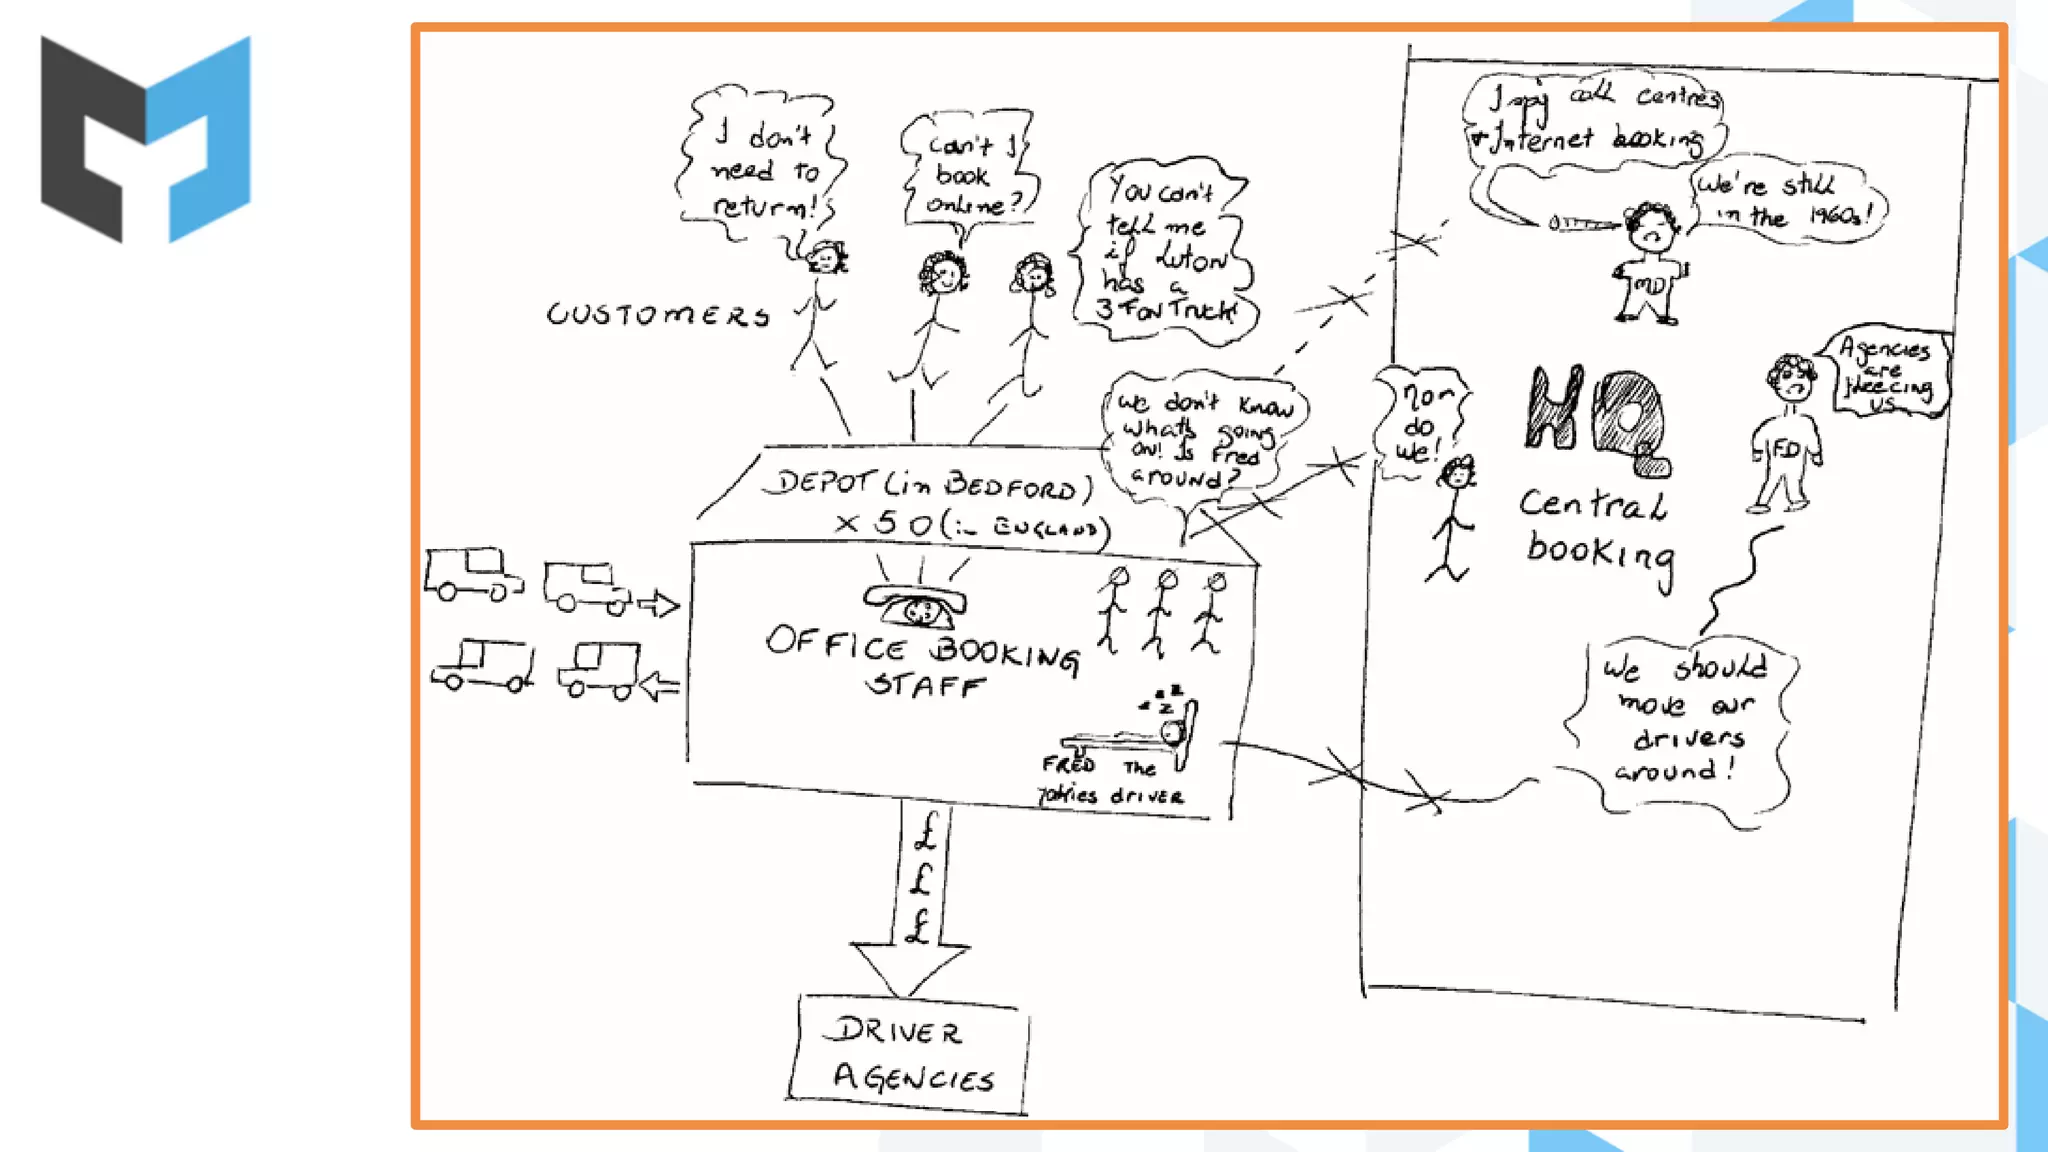 I don't
need to
return!
Can't I
book
online?
You can't
tell me
if Luton
has a
3 Ton Truck!
CUSTOMERS
we don't know
what's going
on! Is Fred
around?
DEPOT (in BEDFORD)
x 50 (in ENGLAND)
OFFICE BOOKING
STAFF
z z
z z
FRED THE
driver
£
£
£
DRIVER
AGENCIES
I spy call centres
+ Internet booking
We're still
in the 1960s!
MD
Agencies
are
fleecing
us
FD
Nor
do
we!
HQ
Central
booking
We should
move our
drivers
around!